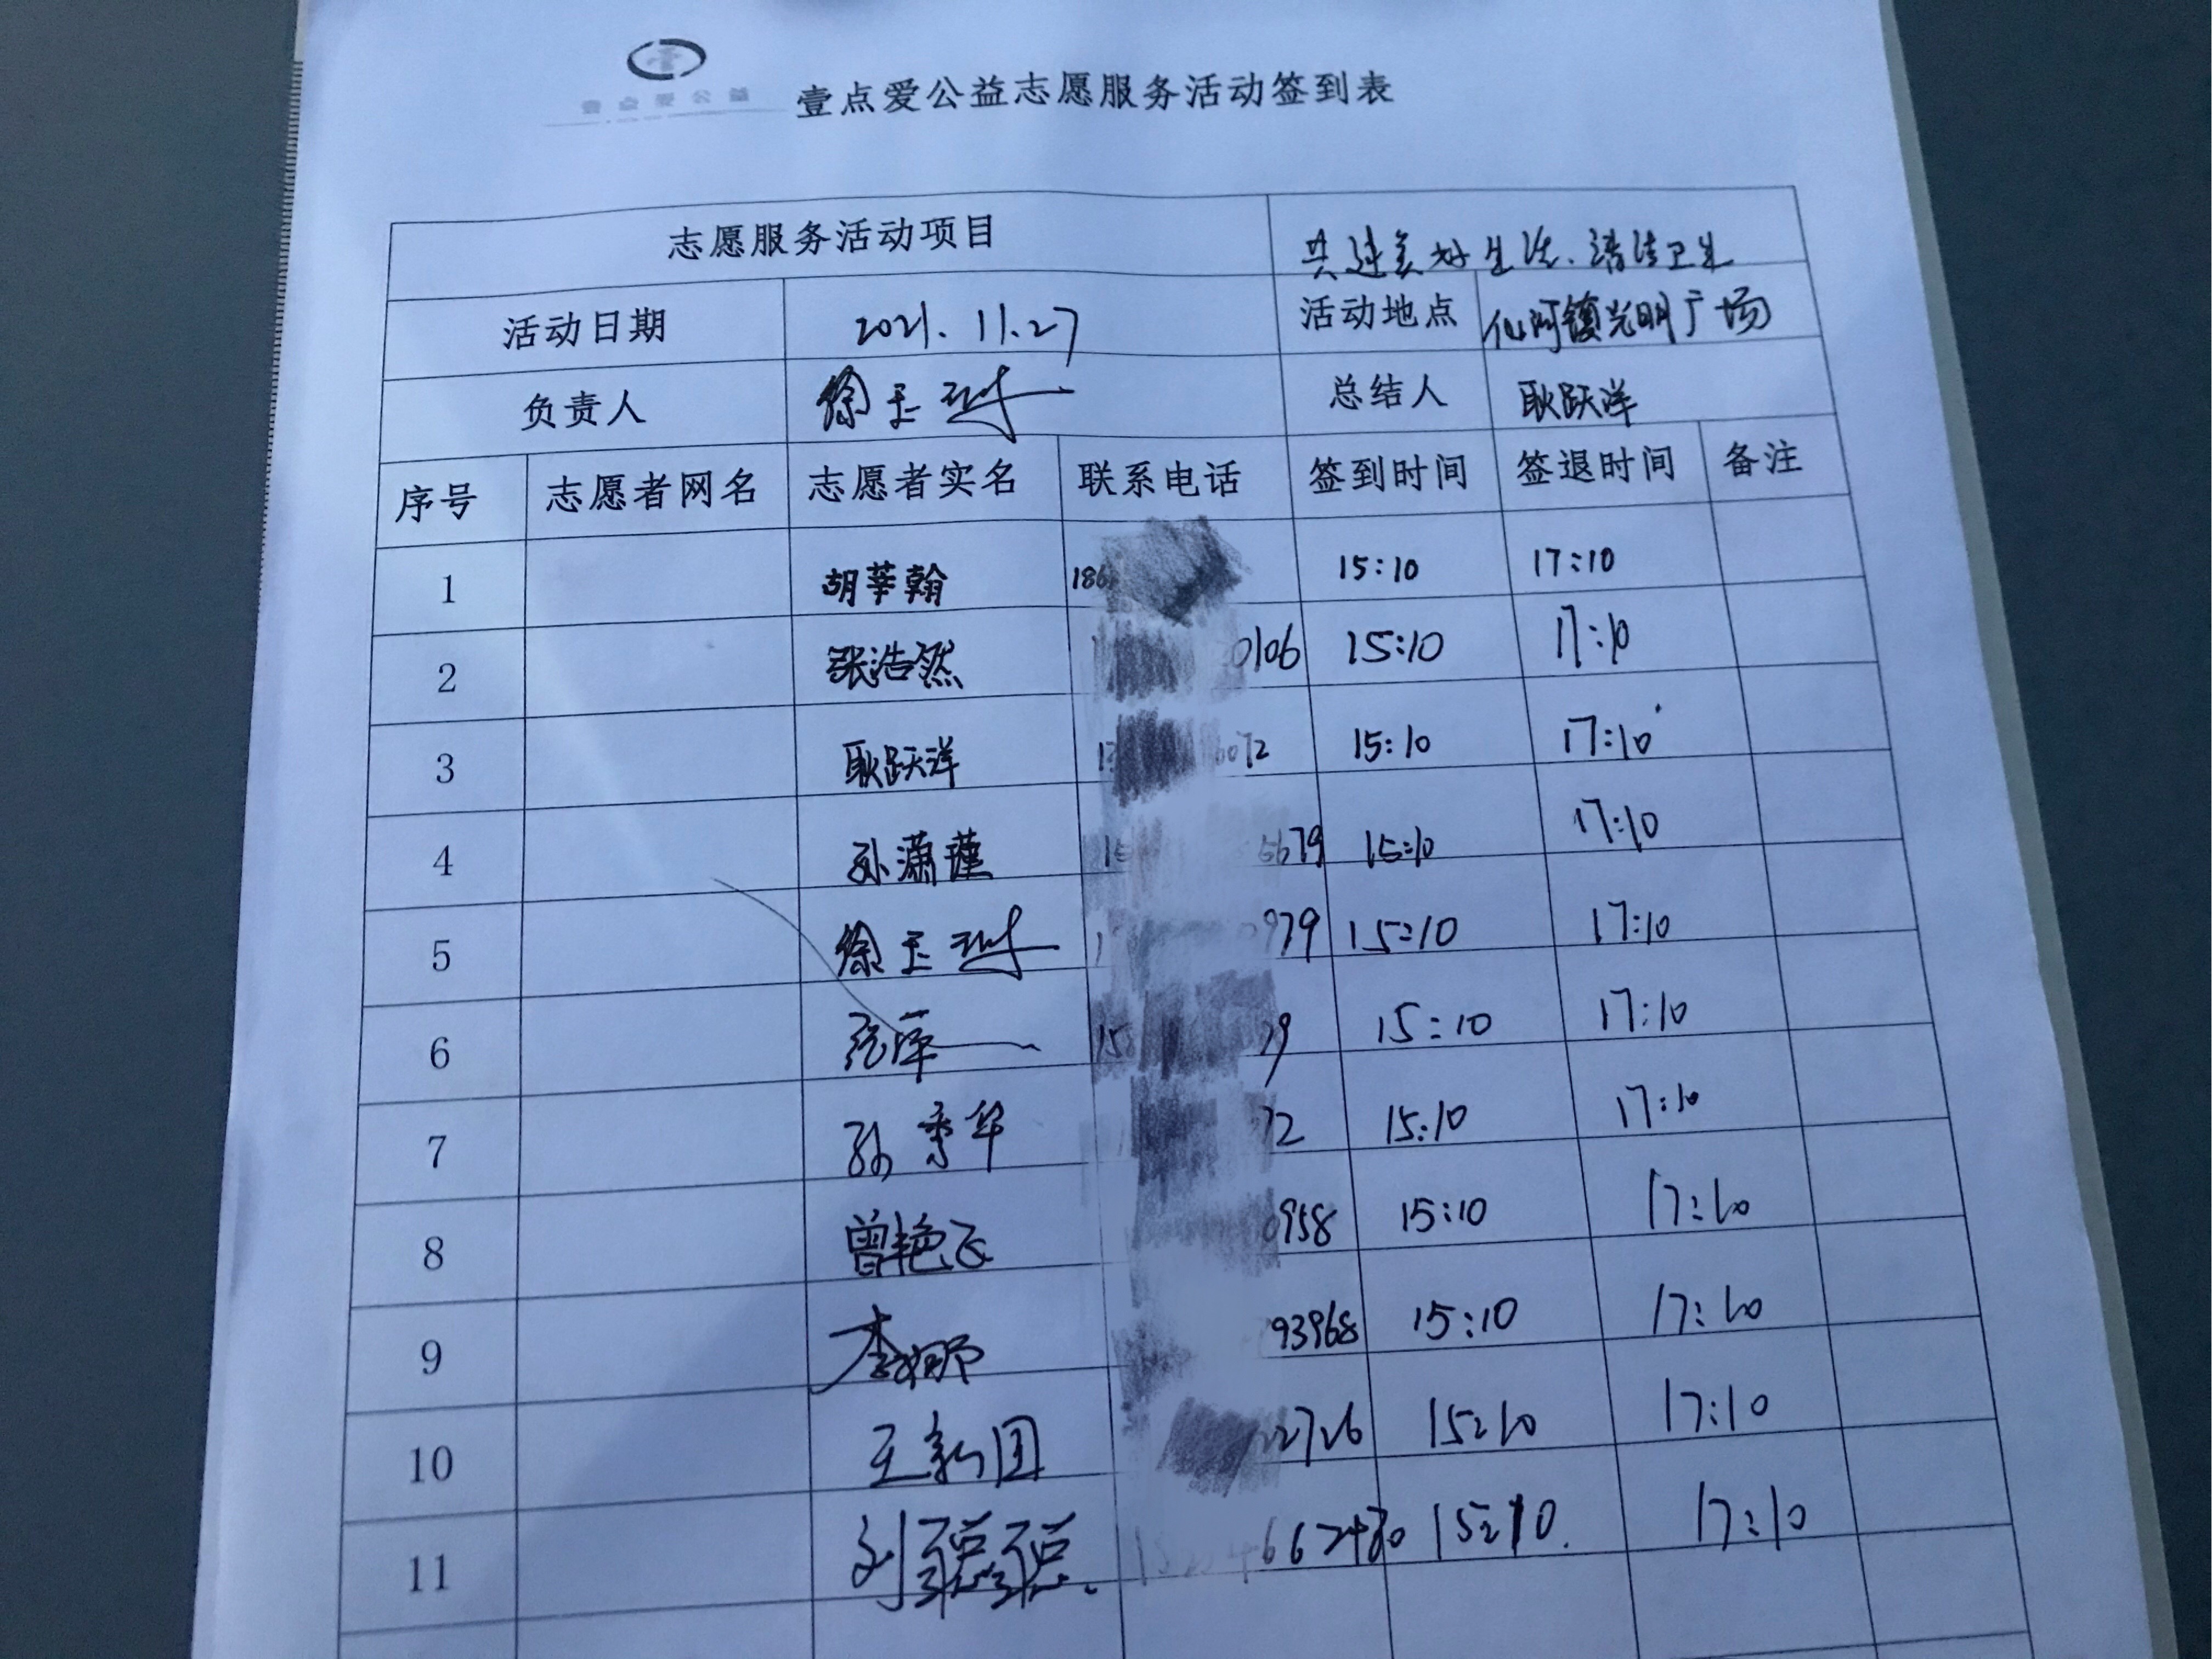 壹点爱公益
壹点爱公益志愿服务活动签到表
志愿服务活动项目 共建美好生活、清洁卫生
活动日期 2021.11.27 活动地点 仙河镇光明广场
负责人 徐玉 总结人 耿跃洋
序号 志愿者网名 志愿者实名 联系电话 签到时间 签退时间 备注
1 胡莘翰 186 15:10 17:10
2 张浩然 0106 15:10 17:10
3 耿跃洋 072 15:10 17:10
4 孙潇瑾 15 5679 15:10 17:10
5 徐玉 979 15:10 17:10
6 15 79 15:10 17:10
7 孙 华 72 15:10 17:10
8 曾艳飞 0958 15:10 17:10
9 李娜 93968 15:10 17:10
10 王新国 22726 15:10 17:10
11 刘聪聪 15:10 17:10